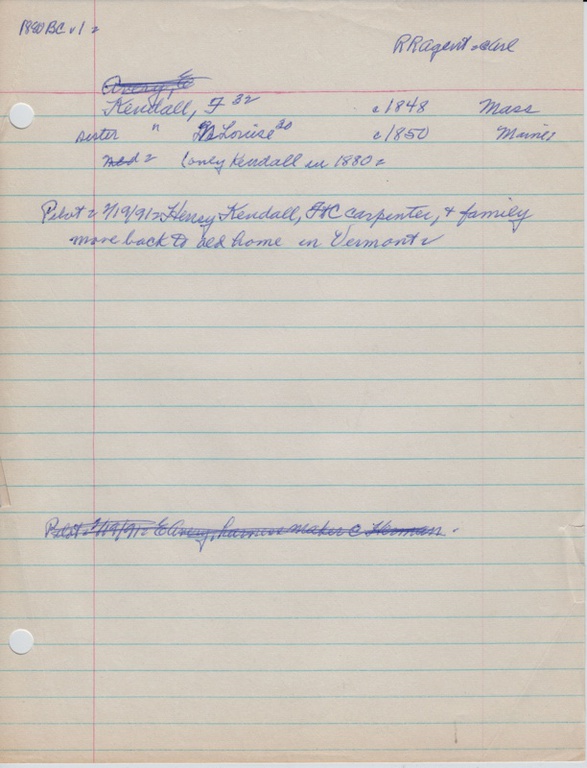 1880 BC v 1 =
RRagent = Carl
Avery, E
Kendall, F 32 c1848 Mass
sister " Louise 30 c1850 Maine
med = Loney Kendall in 1880 =
Pilot = 2/19/91 = Henry Kendall, carpenter, & family
move back to old home in Vermont
Pilot = 2/19/91 = E Avery, harness maker @ Herman